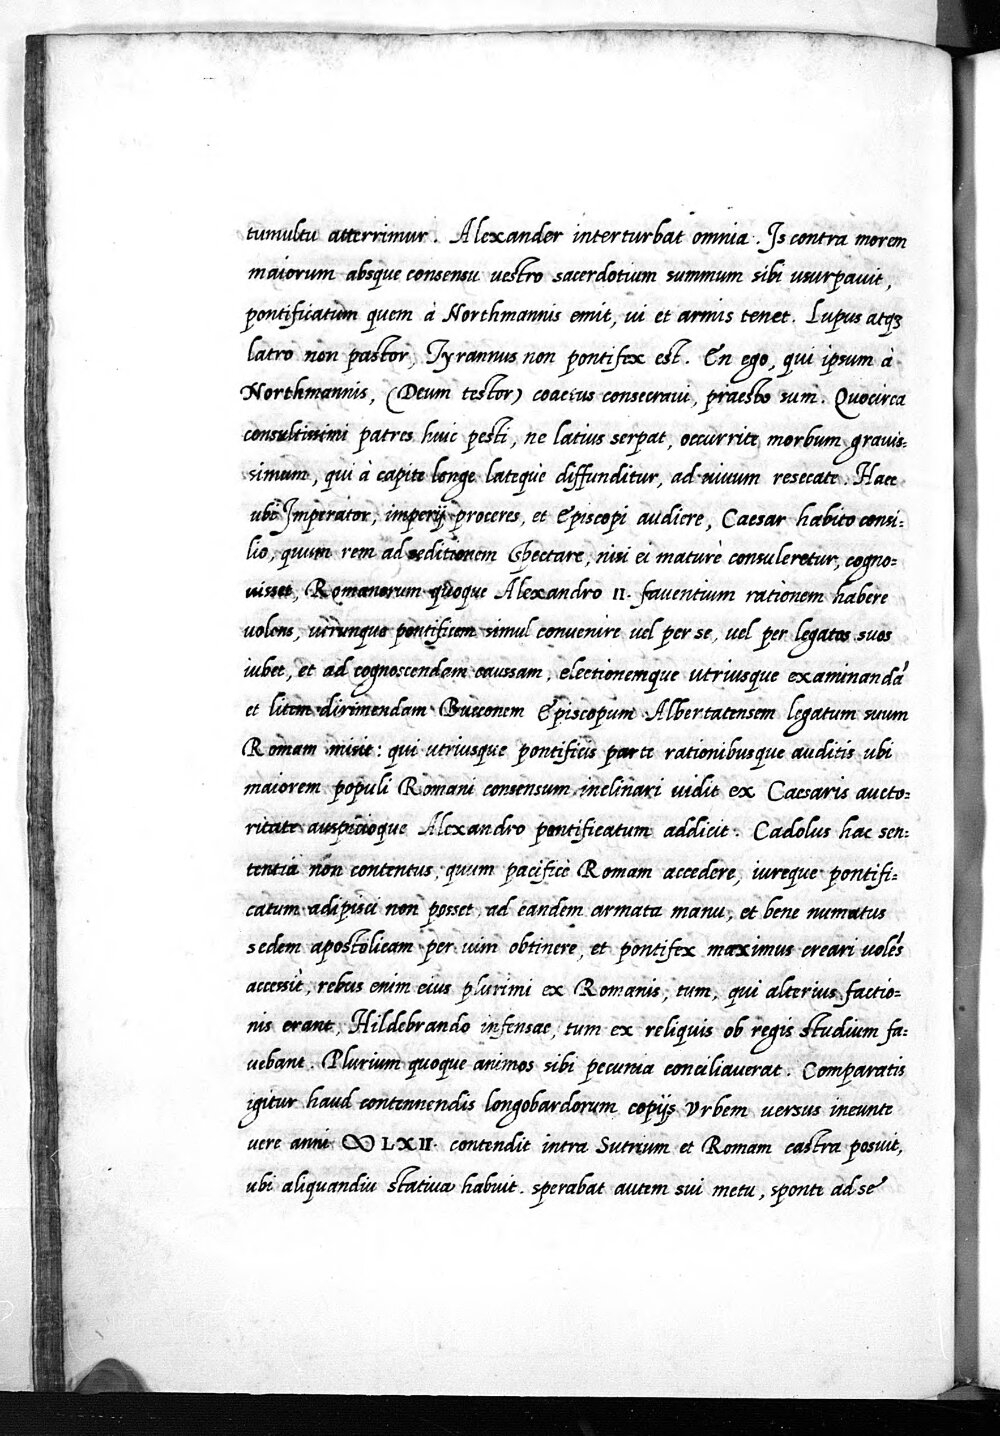 tumultu atterrimur. Alexander interturbat omnia. Is contra morem
maiorum absque consensu vestro sacerdotium summum sibi usurpauit,
pontificatum quem à Northmannis emit, ui et armis tenet. Lupus atqꝫ
latro non pastor, Tyrannus non pontifex est. En ego, qui ipsum à
Northmannis, (Deum testor) coactus consecraui, praesto sum. Quocirca
consultissimi patres huic pesti, ne latius serpat, occurrite, morbum grauis=
simum, qui à capite longe lateque diffunditur, ad uiuum resecate. Haec
ubi Imperator, imperij proceres, et Episcopi audiere, Caesar habito consi=
lio, quum rem ad seditionem spectare, nisi ei maturè consuleretur, cogno=
uisset, Romanorum quoque Alexandro II. fauentium rationem habere
uolens, utrunque pontificem simul conuenire uel per se, uel per legatos suos
iubet, et ad cognoscendam caussam, electionemque utriusque examinandā
et litem dirimendam Bucconem Episcopum Albertatensem legatum suum
Romam misit: qui utriusque pontificis parte rationibusque auditis ubi
maiorem populi Romani consensum inclinari uidit ex Caesaris aucto=
ritate auspicioque Alexandro pontificatum addicit. Cadolus hac sen=
tentia non contentus, quum pacificè Romam accedere, iureque pontifi=
catum adipisci non posset, ad eandem armata manu, et bene numatus
sedem apostolicam per uim obtinere, et pontifex maximus creari uolēs
accessit, rebus enim eius plurimi ex Romanis, tum, qui alterius factio=
nis erant, Hildebrando infensae, tum ex reliquis ob regis studium fa=
uebant. Plurium quoque animos sibi pecunia conciliauerat. Comparatis
igitur haud contennendis longobardorum copijs Vrbem uersus ineunte
uere anni ∞ LXII. contendit intra Sutrium et Romam castra posuit,
ubi aliquandiu statiua habuit. sperabat autem sui metu, sponte ad se